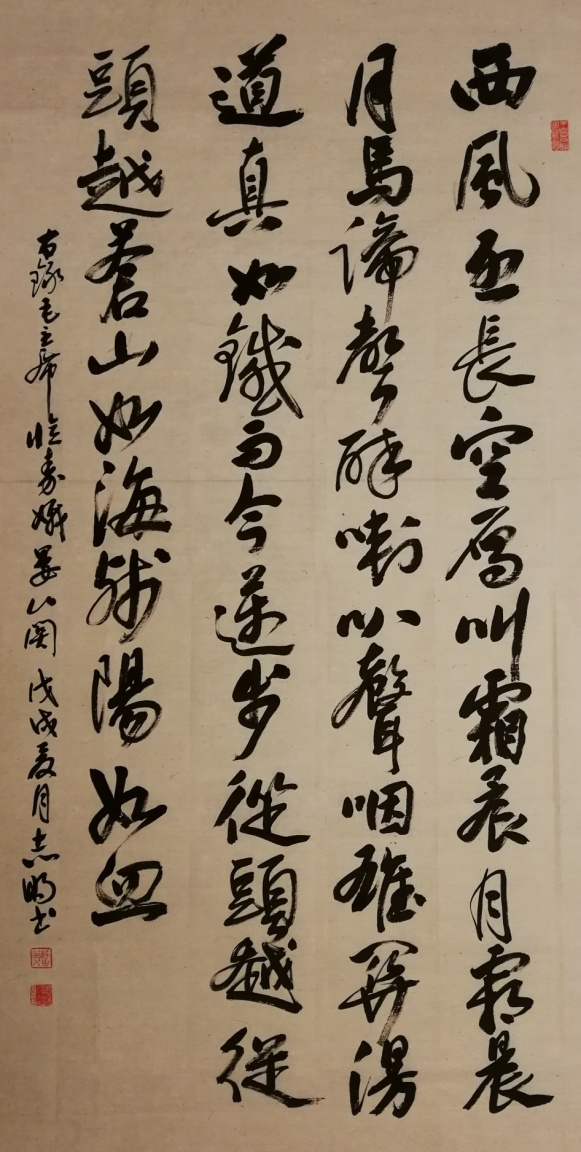 西風烈長空雁叫霜晨月霜晨
月馬蹄聲碎喇叭聲咽雄關漫
道真如鐵而今邁步從頭越從
頭越蒼山如海殘陽如血
右錄毛主席憶秦娥婁山関 戊戌夏月志明书